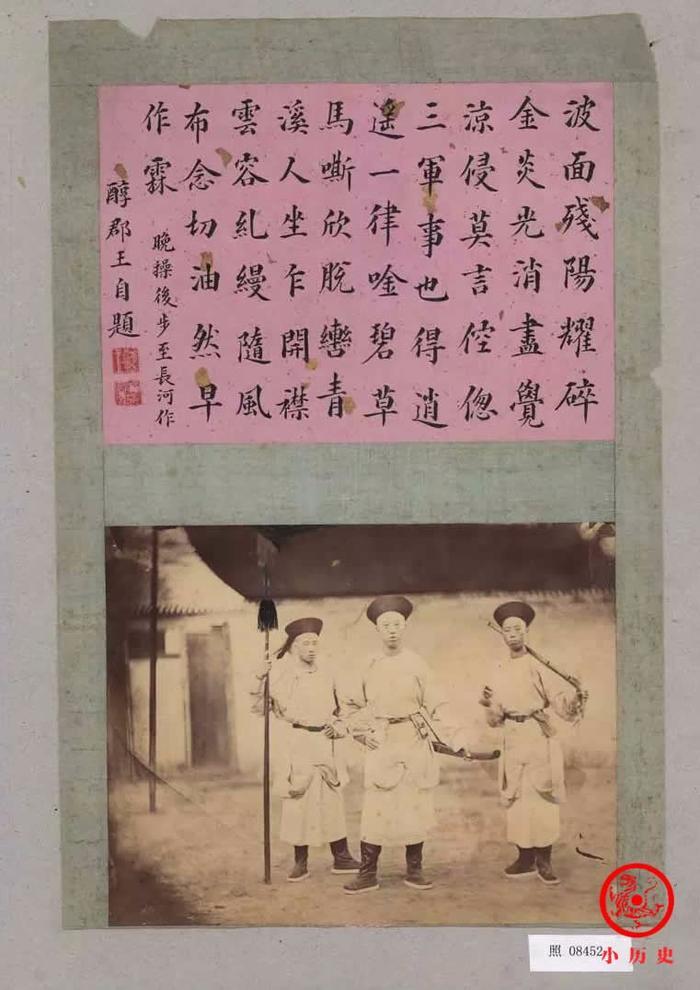 波面殘陽耀碎
金炎光消盡覺
涼侵莫言倥傯
三軍事也得逍
遙一律唫碧草
馬嘶欣脫轡青
溪人坐乍開襟
雲容糺縵隨風
布念切油然早
作霖
晚操後步至長河作
醇郡王自題
照 08452
小历史